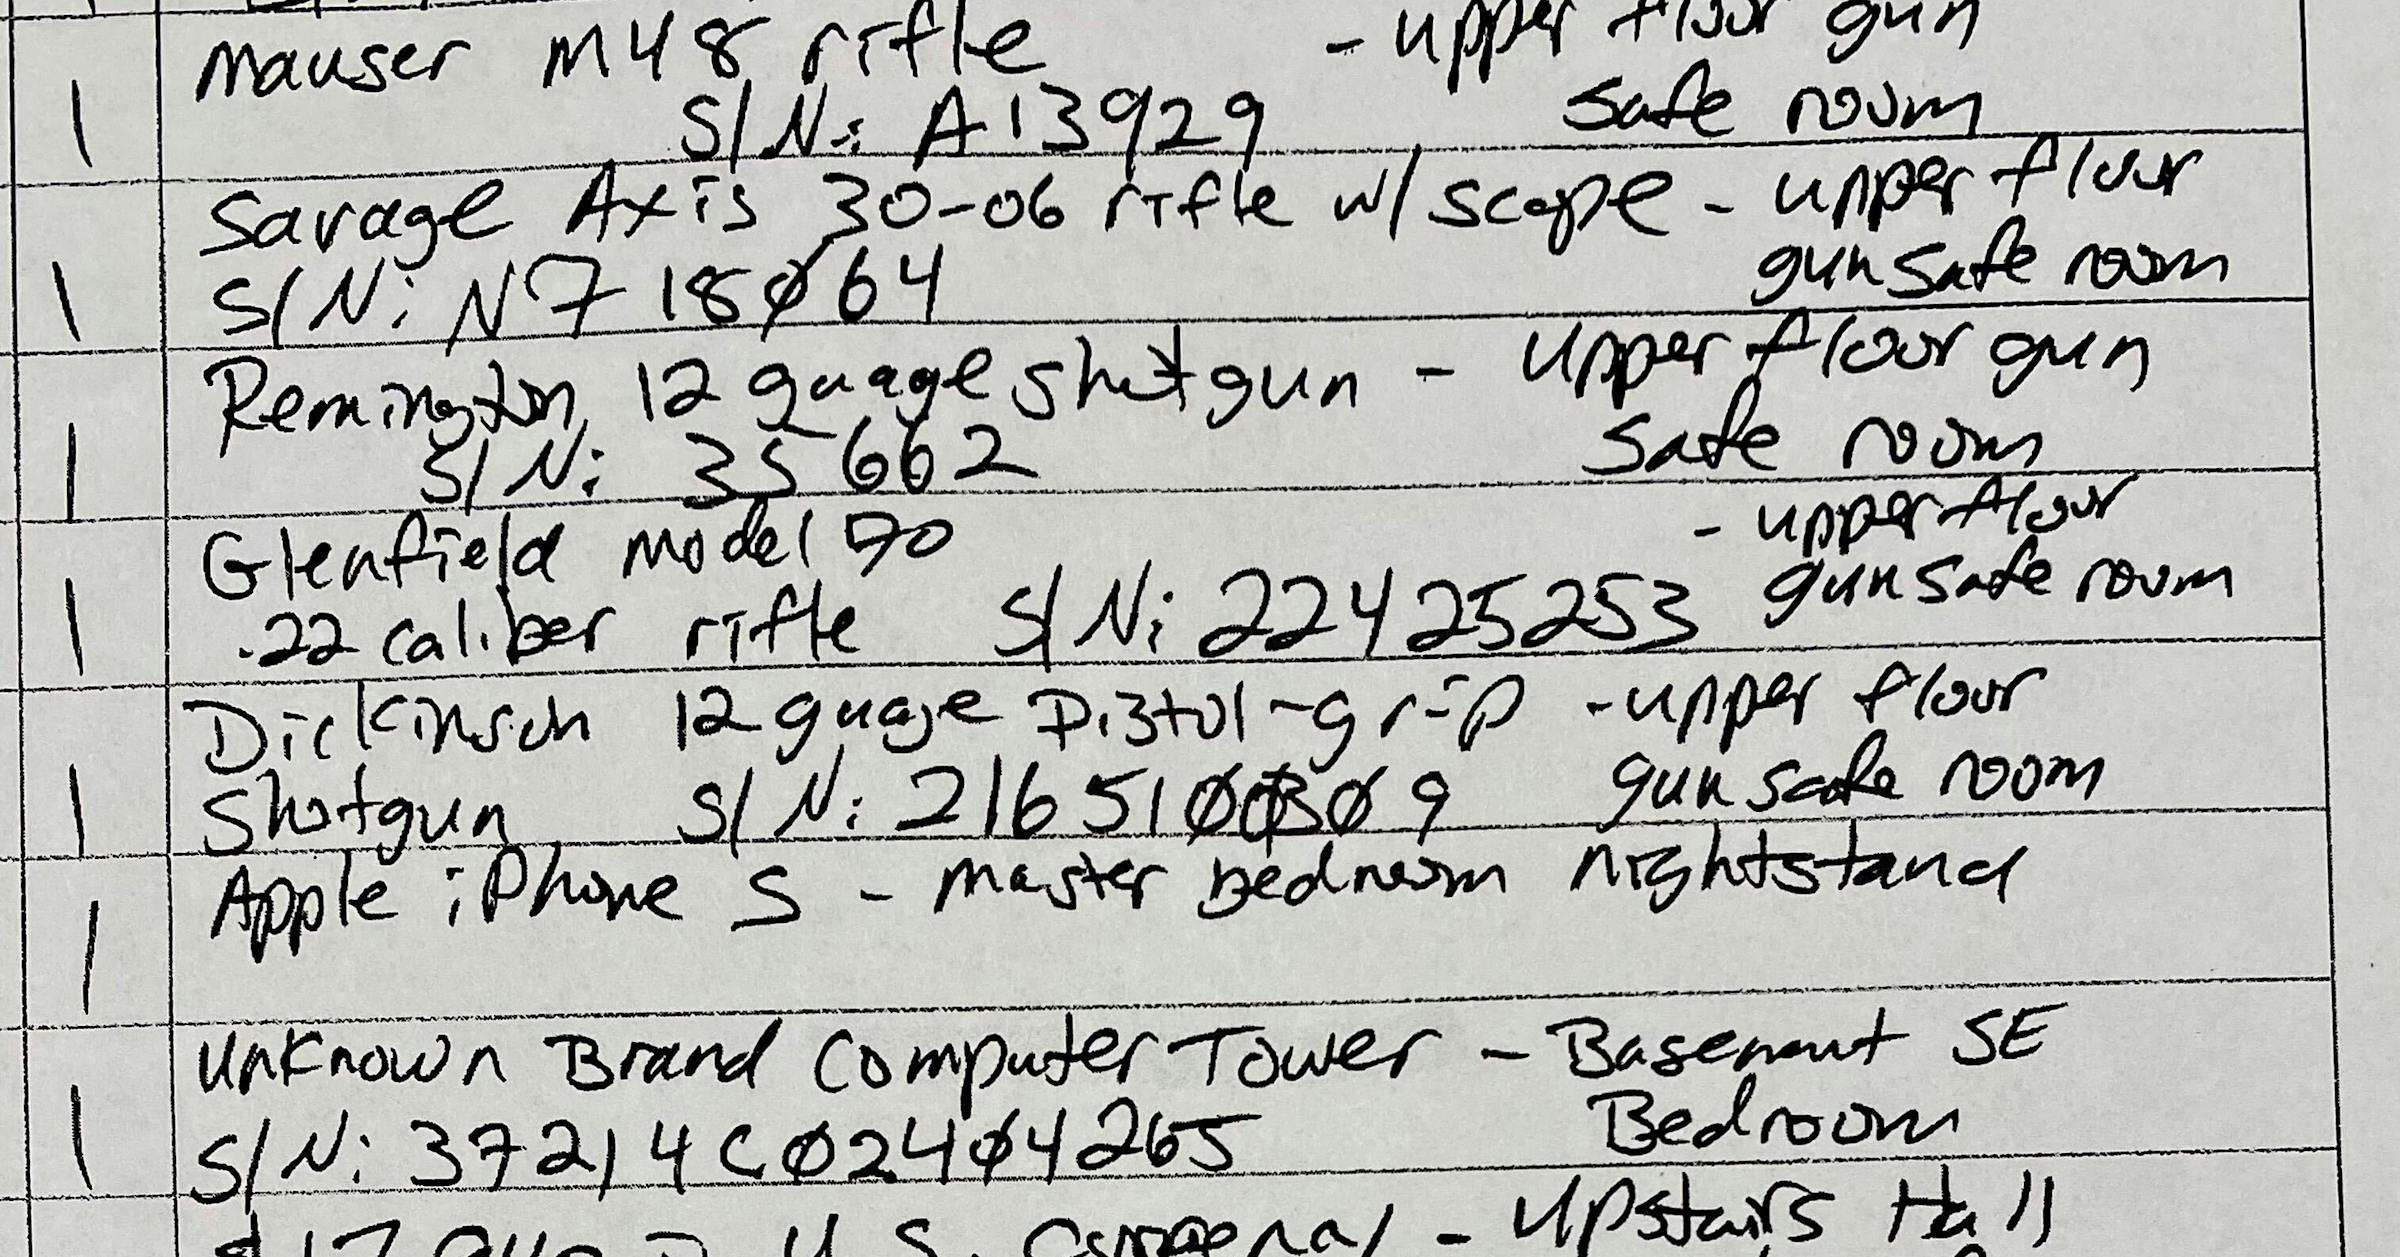 1 Mauser M48 rifle - upper floor gun
S/N: A13929 safe room
1 Savage Axis 30-06 rifle w/ scope - upper floor
S/N: N718064 gun safe room
1 Remington 12 guage shotgun - upper floor gun
S/N: 35662 safe room
1 Glenfield model 70 - upper floor
.22 caliber rifle S/N: 22425253 gun safe room
1 Dickinson 12 guage pistol-grip - upper floor
Shotgun S/N: gun safe room
1 Apple iPhone S - master bedroom nightstand
1 Unknown Brand Computer Tower - Basement SE
S/N: 37214C02404265 Bedroom
U.S. currency - Upstairs Hall